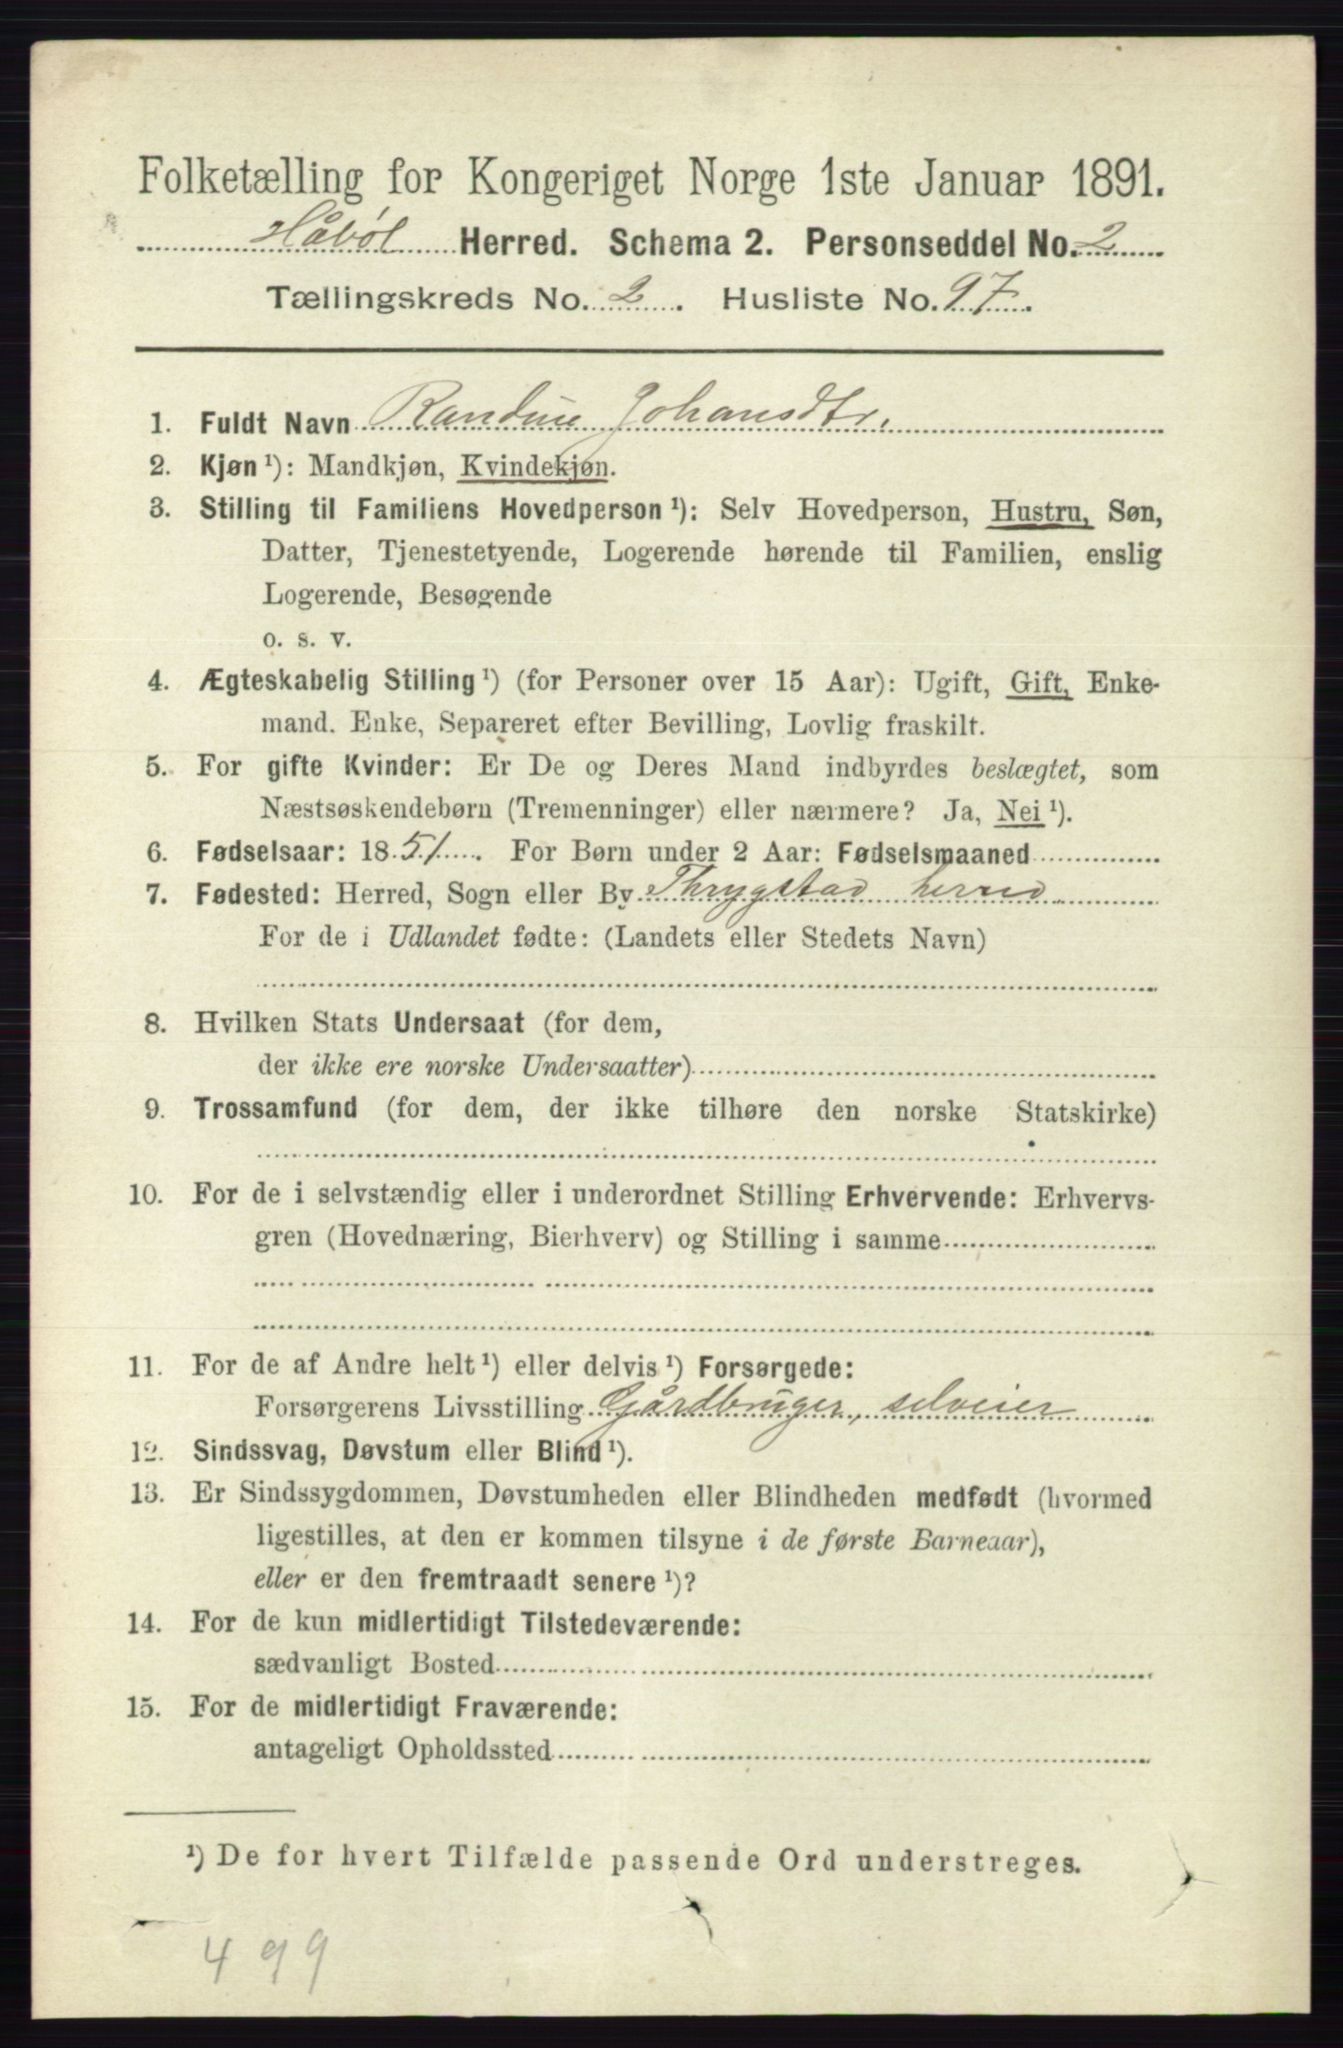 Folketælling for Kongeriget Norge 1ste Januar 1891.
Håbøl Herred. Schema 2. Personseddel No. 2
Tællingskreds No. 2. Husliste No. 97.
1. Fuldt Navn Randine Johansdtr.
2. Kjøn ¹): Mandkjøn, Kvindekjøn.
3. Stilling til Familiens Hovedperson ¹): Selv Hovedperson, Hustru, Søn,
Datter, Tjenestetyende, Logerende hørende til Familien, enslig
Logerende, Besøgende
o. s. v.
4. Ægteskabelig Stilling ¹) (for Personer over 15 Aar): Ugift, Gift, Enke-
mand. Enke, Separeret efter Bevilling, Lovlig fraskilt.
5. For gifte Kvinder: Er De og Deres Mand indbyrdes beslægtet, som
Næstsøskendebørn (Tremenninger) eller nærmere? Ja, Nei ¹).
6. Fødselsaar: 1851. For Børn under 2 Aar: Fødselsmaaned
7. Fødested: Herred, Sogn eller By Thrygstad herred
For de i Udlandet fødte: (Landets eller Stedets Navn)
8. Hvilken Stats Undersaat (for dem,
der ikke ere norske Undersaatter)
9. Trossamfund (for dem, der ikke tilhøre den norske Statskirke)
10. For de i selvstændig eller i underordnet Stilling Erhvervende: Erhvervs-
gren (Hovednæring, Bierhverv) og Stilling i samme
11. For de af Andre helt ¹) eller delvis ¹) Forsørgede:
Forsørgerens Livsstilling Gårdbruger, selveier
12. Sindssvag, Døvstum eller Blind ¹).
13. Er Sindssygdommen, Døvstumheden eller Blindheden medfødt (hvormed
ligestilles, at den er kommen tilsyne i de første Barneaar),
eller er den fremtraadt senere ¹)?
14. For de kun midlertidigt Tilstedeværende:
sædvanligt Bosted
15. For de midlertidigt Fraværende:
antageligt Opholdssted
¹) De for hvert Tilfælde passende Ord understreges.
499